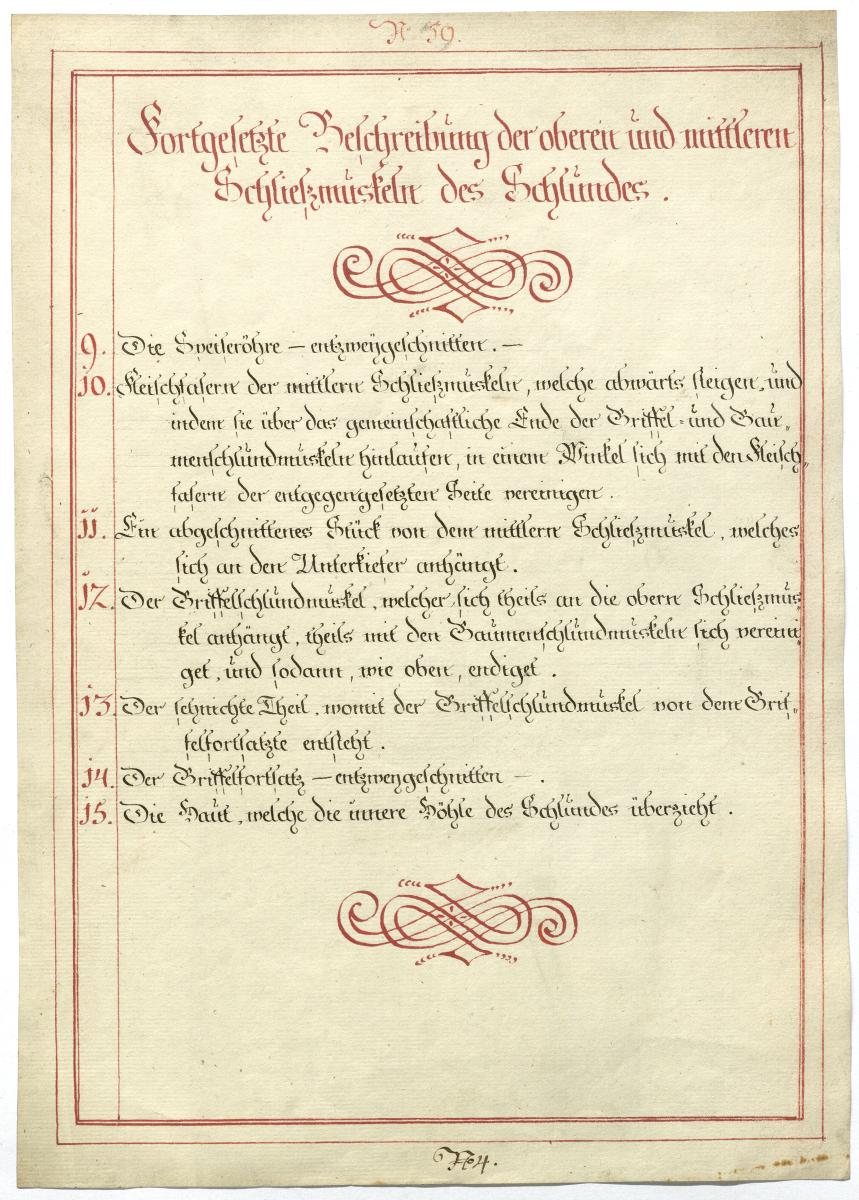 N 59.
Fortgesetzte Beschreibung der oberen und mittleren
Schließmuskeln des Schlundes.
9. Die Speiseröhre — entzweygeschnitten. —
10. Fleischfasern der mittlern Schließmuskeln, welche abwärts steigen, und
indem sie über das gemeinschaftliche Ende der Griffel- und Gau„
menschlundmuskeln hinlaufen, in einem Winkel sich mit den Fleisch„
fasern der entgegengesetzten Seite vereinigen.
11. Ein abgeschnittenes Stück von dem mittlern Schließmuskel, welches
sich an den Unterkiefer anhängt.
12. Der Griffelschlundmuskel, welcher sich theils an die obern Schließmus„
kel anhängt, theils mit den Gaumenschlundmuskeln sich vereini„
get, und sodann, wie oben, endiget.
13. Der sehnichte Theil, womit der Griffelschlundmuskel von dem Grif„
felfortsatzte entsteht.
14. Der Griffelfortsatz — entzweygeschnitten —.
15. Die Haut, welche die innere Höhle des Schlundes überzieht.
No 4.